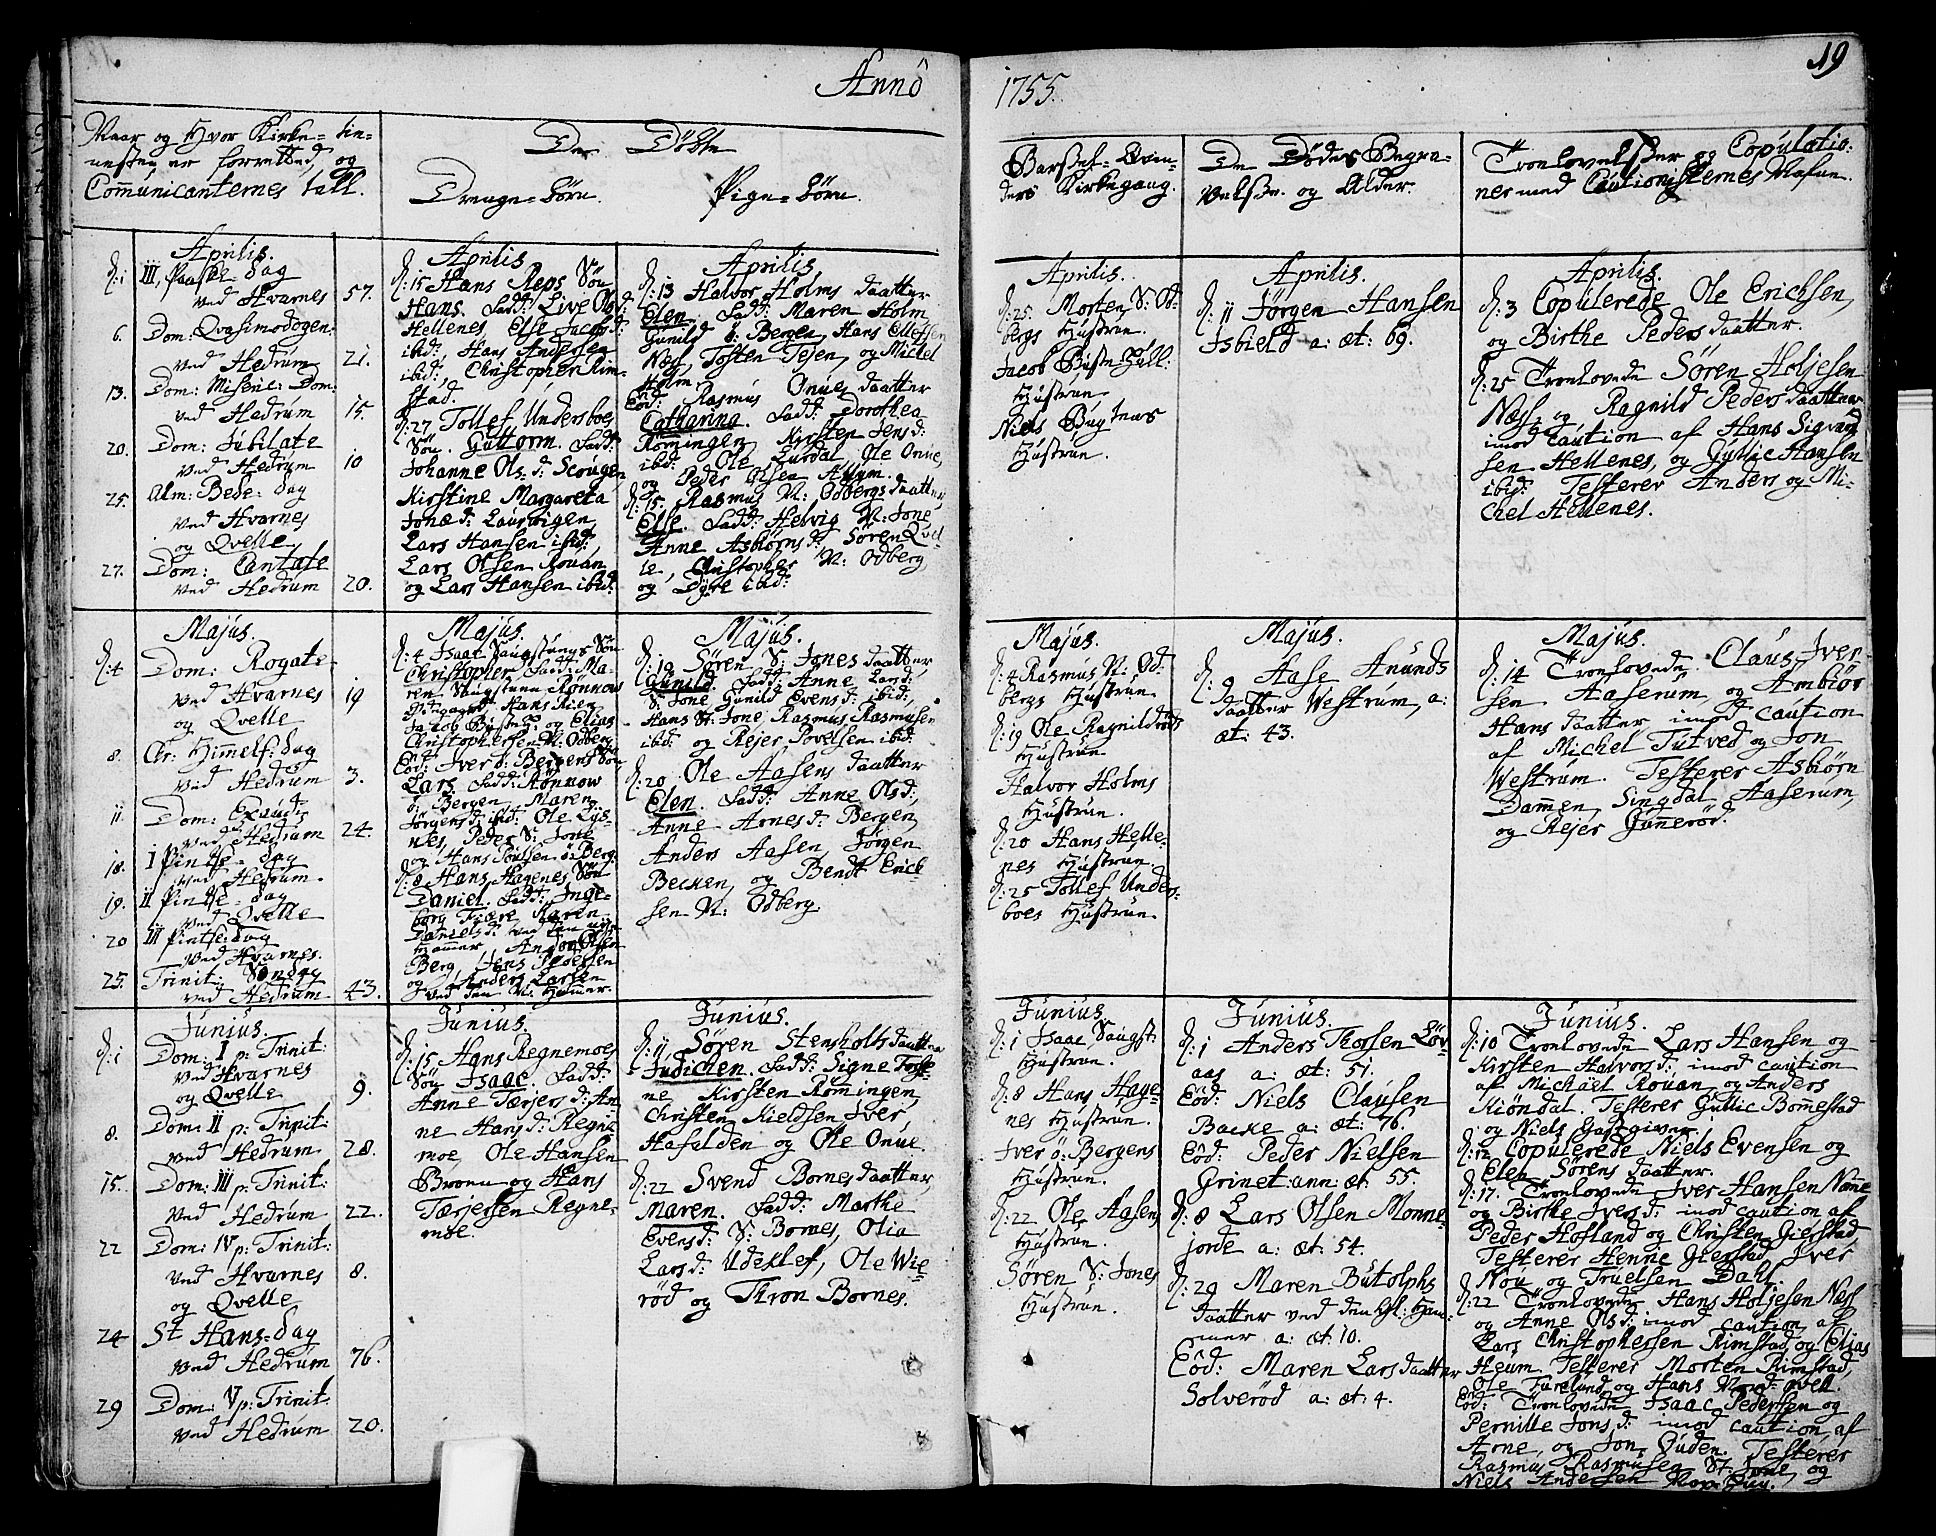 Annô
1755.
19
Naar og Hvor Kirke=tie-
nesten er forretted, og
Com̄unicanternes tall.
De Döbte
Drenge=börn.
Pige=börn.
Barsel-Qvin-
ders Kirkegang.
De Dödes Begra-
velse. og Alder.
Trolovelser og Copulatio:
ner med Cautionisternes Nafne.
Aprilis.
d: 1 III Paaske-dag
ved Hvarnes 57.
6. Dom: Qvasimodogen:
ved Hedrum 21.
13. Dom: Miseric: Dom:
ved Hedrum 15.
20. Dom: Jubilate
ved Hedrum 10
25. Alm: Bede-dag
ved Hvarnes
og Qvelle
27. Dom: Cantate
ved Hedrum 20.
Aprilis
d: 15 Hans Reps Sön
Hans. fadd: Live Ols d:
Hellenes, Else Jacobs d:
ibid, Hans Andersen
ibid:, Christopher Rim-
stad.
d: 27 Tollef Undersboes
Sön. Guttorm. fadd:
Johanne Ols d: Scougen
Kirstine Margareta
Jonæ d: Laurvigen,
Lars Hansen ibid:
Lars Olsen Rouan
og Lars Hansen ibid:
Aprilis.
d: 13 Halvor Holms daatter
Elen. fadd: Maren Holm
Gunild ö: Bergen, Hans Ellefsen
Næs, Tosten Tejen, og Michel
Holm.
Eod: Rasmus Onnes daatter
Catharina. fadd: Dorothea
Romingen, Kirsten Jens d:
ibid: Ole Lurdal, Ole Onne,
og Peder Olsen Allum.
d: 15. Rasmus N: Odbergs daatter
Else. fadd: Helvig N: Jone,
Anne Asbiörns d: Sören Qvel-
le, Christopher N: Odberg,
og Dyre ibid:
Aprilis.
d: 25. Morten S: Od-
bergs Hustrue.
Jacob
Hustrue.
Niels Bugtens
Hustrue.
Aprilis.
d: 11 Jörgen Hansen
Isbield a: æt: 69.
Aprilis.
d: 3 Copulerede Ole Erichsen,
og Birthe Peders daatter.
d: 25 Trolovede Sören Holjesen
Næss, og Ragnild Peders daatter
imod caution af Hans Sigvard
sen Hellenes, og Gullic Hansen
ibid: Testerer Anders og Mi-
chel Hellenes.
Majus.
d: 4 Dom: Rogate
ved Hvarnes 19
og Qvelle
8. Chr: Himelf: dag
ved Hedrum 3.
11. Dom: Exaudi
ved Hedrum 24.
18. I Pintse-dag
ved Hedrum.
19. II Pintse-dag
ved Qvelle
20 III Pintse: dag
ved Hvarnes.
25. Trinit: Söndag
ved Hedrum 43.
Majus.
d: 4 Isaac Saugstuens Sön
Christopher fadd: Ma-
ren Saugstuen Rönnow
Hans Rien
Jacob og Elias
Christophersen N: Odberg
Eod: Iver ö: Bergens Sön
Lars. fadd: Rönnow
ö: Bergen, Maren
Jörgens d: ibid: Ole Lys-
nes, Peder S: Jone
og Hans Poulsen ö: Berg.
d: 8 Hans Hagenes Sön
Daniel. fadd: Inge-
borg Karen
Daniels d: ved den
Ham̄er, Anders Olsen
Berg, Jens
og Anders Larsen
ved den N: Ham̄er.
Majus.
d: 19 Sören S: Jones daatter
Gunild. fadd: Anne Lars d:
S: Jone Gunild Evens d: ibid;
Hans St: Jone, Rasmus Rasmusen
ibid: og Rejer Povelsen ibid:
d: 20 Ole Aasens daatter
Elen. fadd: Anne Ols d;
Anne Arnes d: Bergen,
Anders Aasen, Jörgen
Becken, og Bendt Erick-
sen N: Odberg.
Majus.
d: 4 Rasmus N: Od-
bergs Hustrue
d: 19 Ole Ragnildröds
Hustrue
Halvor Holms
Hustrue.
d: 20 Hans Helle-
nes Hustrue.
d: 25 Tollef Unders-
boes Hustrue.
Majus.
d: 9 Aase Anunds
daatter Westrum, a:
æt: 43.
Majus.
d: 14 Trolovede Claus Iver-
sen Aaserum, og Ambiör
Hans daatter imod caution
af Michel Tutved og Jon
Westrum. Testerer Asbiörn
Dam̄en, Singdal, Aaserum,
og Rejer Gun̄eröd.
Junius.
d: 1 Dom: I p: Trinit:
ved Hvarnes
og Qvelle 9.
8. Dom: II p: Trinit:
ved Hedrum 28.
15. Dom: III p: Trinit:
ved Hedrum 22.
22 Dom: IV p: Trinit:
ved Hvarnes 8.
og Qvelle
24 St Hans=dag
ved Hedrum 76.
29 Dom: V p: Trinit.
ved Hedrum 20.
Junius.
d: 15 Hans Regnemoes
Sön Isaac. fadd:
Anne Tærjers d: An-
ne Hans d: Regne
moe, Ole Hansen
Broen og Hans
Tærjersen Regne-
moe.
Junius.
d: 11, Sören Stensholts daatter
Judichen. fadd: Signe Torste-
ne, Kirsten Romingen,
Christen Kieldsen, Iver
Hafalden og Ole Onne.
d: 22 Svend Bornes daatter
Maren. fadd: Marthe
Evens d: S: Bornes, Olia
Lars d: Udeklef, Ole Wie-
röd og Thron Bornes.
Junius.
d: 1 Isaac Saugst:
Hustrue.
d: 8 Hans Hage-
nes Hustrue.
Iver ö: Bergens
Hustrue.
d: 22 Ole Aasens
Hustrue.
Sören S: Jones
Hustrue.
Junius.
d: 1 Anders Thorsen Löv-
aas a: æt: 51.
Eod: Niels Clausen
Backe a: æt: 76.
Eod: Peder Nielsen
Grinet: ann: æt. 55.
d: 8 Lars Olsen Monne-
jorde a: æt: 54.
d: 29 Maren Butolphs
daatter ved den Gl: Ham-
mer a: æt. 10.
Eod: Maren Lars daatter
Solveröd a: æt: 4.
Junius.
d: 10 Trolovede Lars Hansen og
Kirsten Halvors d: imod caution
af Michael Rouan og Anders
Kiöndal. Testerer Gullic Bom̄estad
og Niels Gastgiver.
d: 12 Copulerede Niels Evensen og
Elen Sörens daatter.
d: 17. Trolovede Iver Hansen Nōme
og Birthe Ivers d: imod caution af
Peder Hofland og Christen Gierstad,
Testerer Henric Gierstad, Iver
Nou og Truelsen Dahl.
d: 22 Trolovede Hans Holjesen Næss
og Anne Ols d: imod caution af
Lars Christophersen Rimstad og Elias
Heum, Testerer Morten Rimstad,
Ole Fureland og Hans Nord-qvell.
Eod: Trolovede Isaac Pedersen og
Pernille Jons d: imod caution af
Arne, og Jon Guden. Testerer
Rasmus Rasmusen St: Jone, og
Niels Andersen